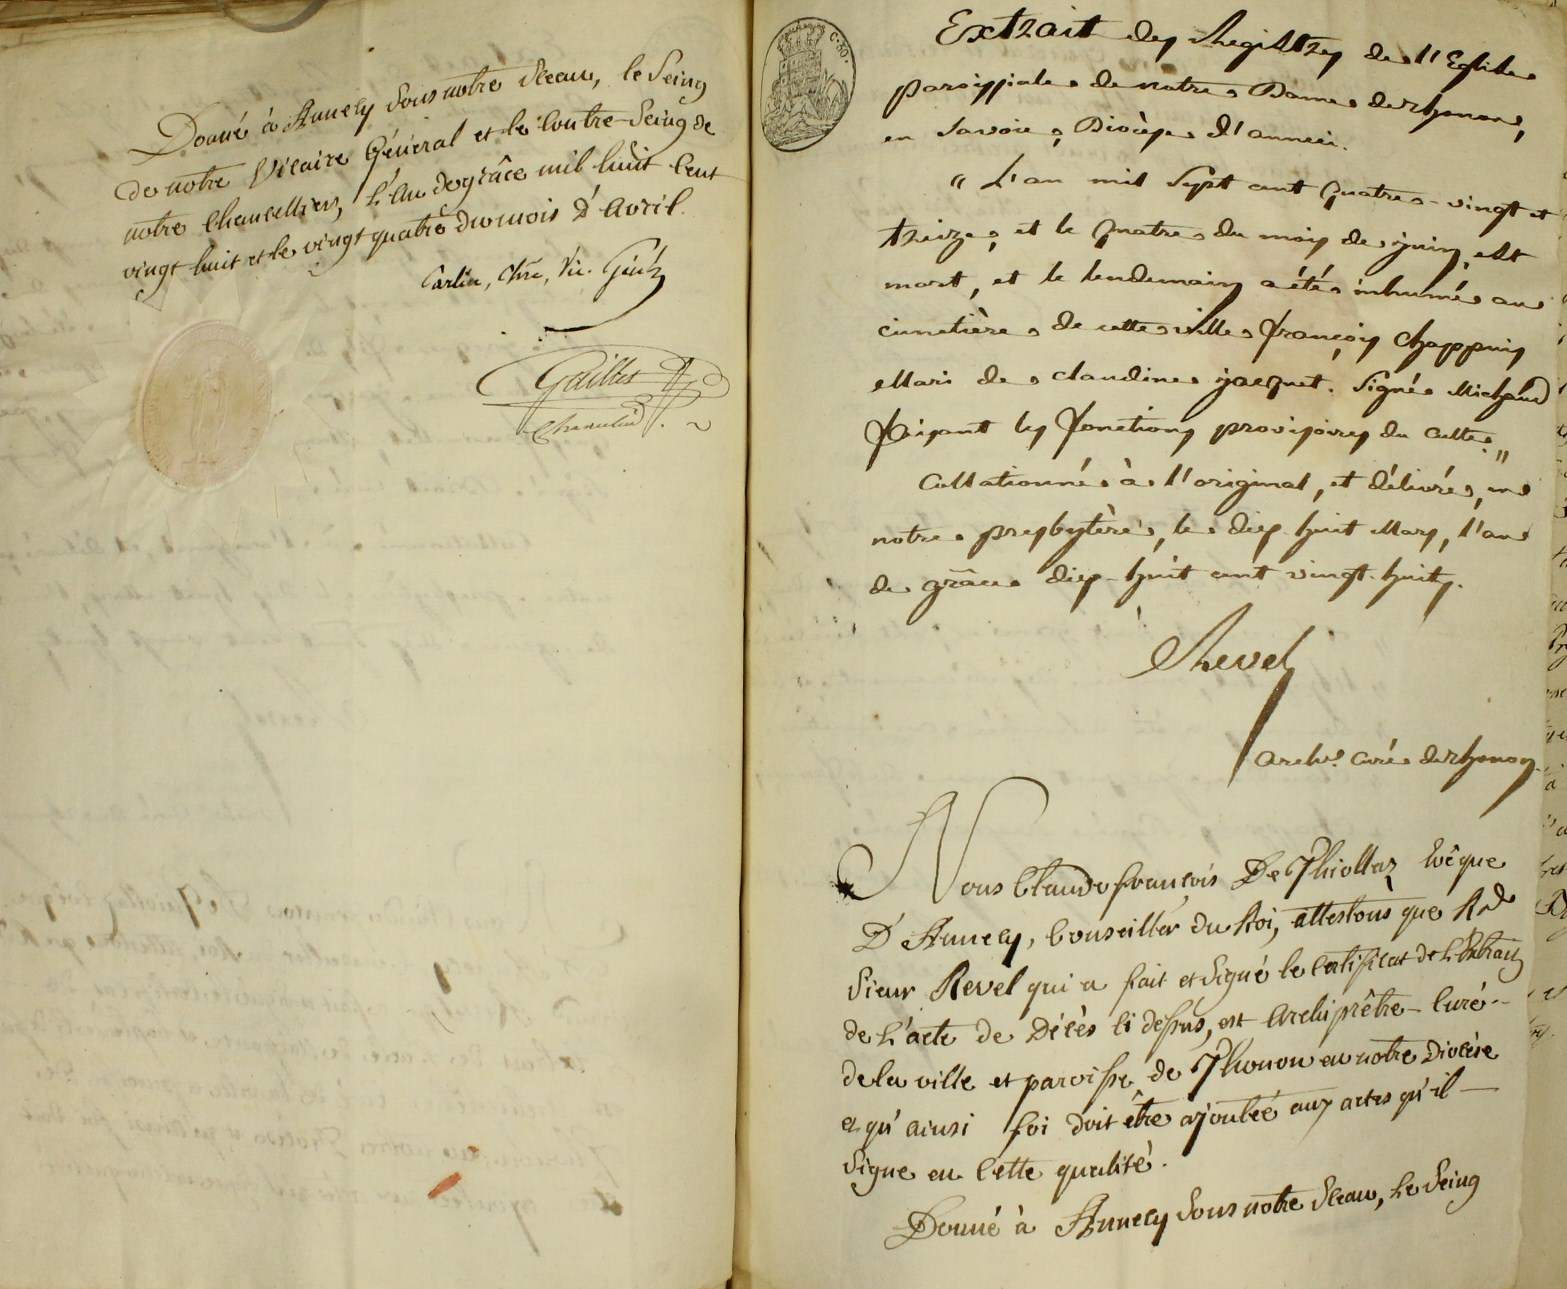 Donné à Annecy sous notre Sceau, le Seing
de notre Vicaire Général et le Contre-Seing de
notre Chancellier, L'An de grâce mil huit Cent
vingt huit et le vingt quatre du mois D'Avril.
Carlin, Chne, Vic. Génl
Gaillet
Chancelier
C. 30.
Extrait des Registres de l'Eglise
paroissiale de notre Dame de Thonon,
en Savoie, Diocèse d'anneci.
"L'an mil Sept cent quatre-vingt et
treize, et le quatre du mois de juin, est
mort, et le lendemain a été inhumé au
cimetière de cette ville françois Chappuis
Mari de claudine jacquet. Signé Michaud
faisant les fonctions provisoires du culte."
Collationné à l'original, et délivré, en
notre presbytère, le dix huit Mars, l'an
de grâce dix-huit cent vingt-huit.
Revel
Archip. curé de Thonon.
Nous Claude françois De Thiollaz Evêque
D'Annecy, Conseiller du Roi, attestons que Rd
Sieur Revel qui a fait et Signé le Certificat de L'Extrait
de L'acte de Décès Ci dessus, est Archiprêtre-Curé-
de la ville et paroisse de Thonon en notre Diocèse
et qu'ainsi foi doit être ajoutée aux actes qu'il -
Signe en Cette qualité.
Donné à Annecy Sous notre Sceau, Le Seing